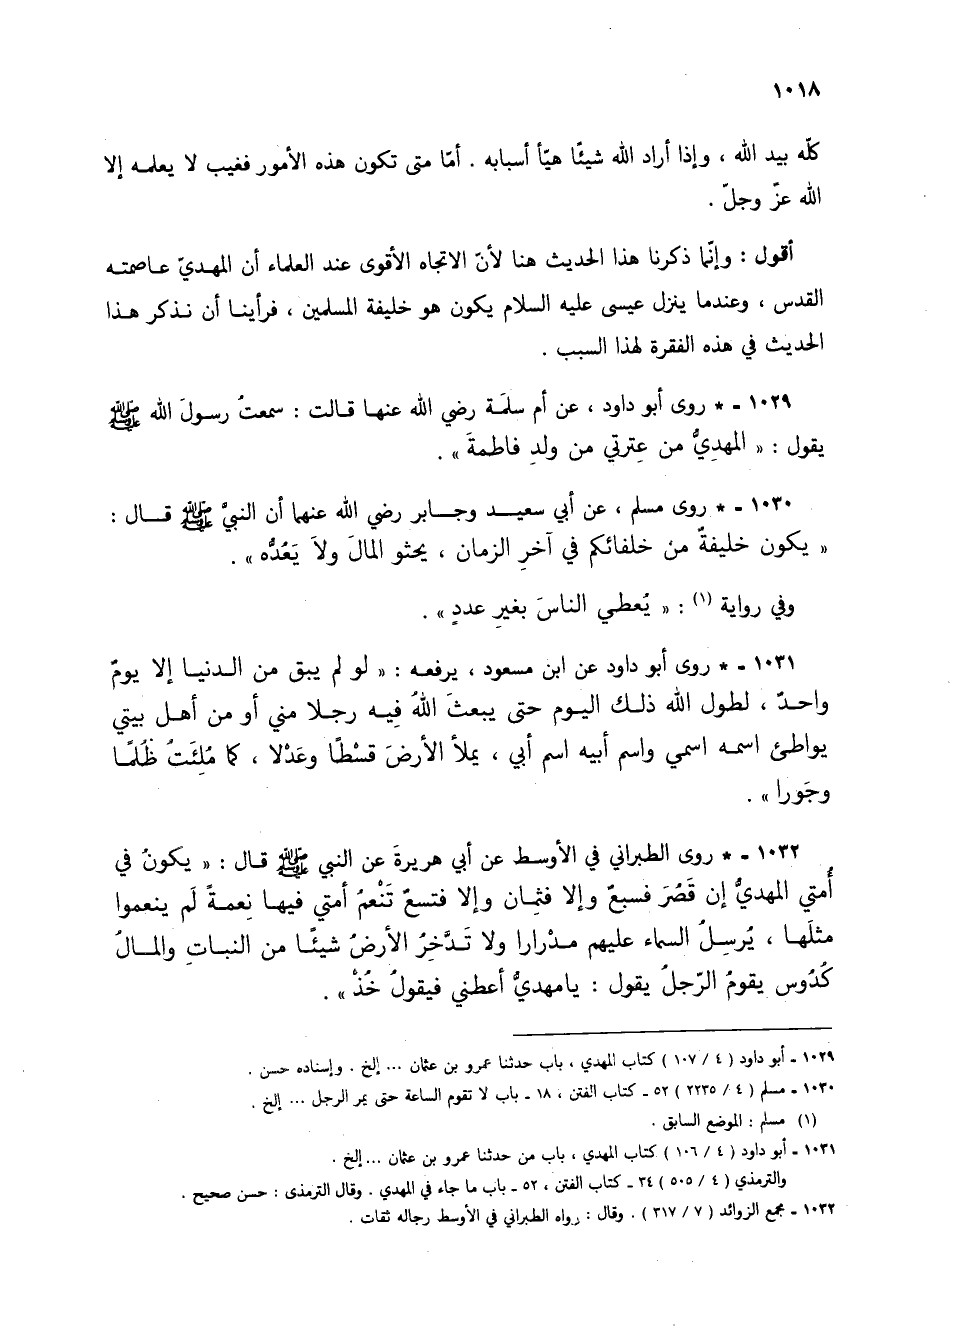 ١٠١٨
كلّه بيد الله ، وإذا أراد الله شيئًا هيّأ أسبابه . أمّا متى تكون هذه الأمور فغيب لا يعلمـه إلا
الله عزّ وجلّ .
أقول : وإنّما ذكرنا هذا الحديث هنا لأنّ الاتجاه الأقوى عند العلماء أن المهديّ عـاصمتـه
القدس ، وعندما ينزل عيسى عليه السلام يكون هو خليفة المسلمين ، فرأينـا أن نـذكر هـذا
الحديث في هذه الفقرة لهذا السبب .
١٠٢٩ - * روى أبو داود ، عن أم سلمَـة رضي الله عنهـا قـالت : سمعتُ رسـولَ الله ﷺ
يقول : « المهديُّ من عِترتي من ولدِ فاطمةَ » .
١٠٣٠ - * روى مسلم ، عن أبي سعيـد وجـابر رضي الله عنهما أن النبيَّ ﷺ قـال :
« يكون خليفةٌ من خلفائكم في آخرِ الزمان ، يحثو المالَ ولاَ يَعُدُّه » .
وفي رواية (١) : « يُعطي الناسَ بغيرِ عددٍ » .
١٠٣١ - * روى أبو داود عن ابن مسعود ، يرفعـه : « لو لم يبق من الـدنيـا إلا يومٌ
واحـدٌ ، لطول الله ذلـك اليـوم حتى يبعثَ اللهُ فيـه رجـلا مني أو من أهـل بيتي
يواطئ اسمـه اسمي واسم أبيه اسم أبي ، يملأ الأرضَ قسْطًا وعَدْلا ، كما مُلِئَتْ ظُلمًـا
وجَورا » .
١٠٣٢ - * روى الطبراني في الأوسط عن أبي هريرةَ عن النبي ﷺ قال : « يكونُ في
أُمتي المهديُّ إن قَصُرَ فسبعٌ وإلا فثمان وإلا فتسعٌ تَنْعمُ أمتي فيهـا نِعمـةً لَم ينعموا
مثلَهـا ، يُرسِـلُ السماء عليهم مـدْرارا ولا تَـدَّخِرُ الأرضُ شيئًـا من النبـاتِ والمـالُ
كُدُوس يقومُ الرّجلُ يقول : يامهديُّ أعطني فيقولُ خُذْ » .
١٠٢٩ - أبو داود ( ٤ / ١٠٧ ) كتاب المهدي ، باب حدثنا عمرو بن عثمان ... إلخ . وإسناده حسن .
١٠٣٠ - مسلم ( ٤ / ٢٢٣٥ ) ٥٢ - كتاب الفتن ، ١٨ - باب لا تقوم الساعة حتى يمر الرجل ... إلخ .
(١) مسلم : الموضع السابق .
١٠٣١ - أبو داود ( ٤ / ١٠٦ ) كتاب المهدي ، باب من حدثنا عمرو بن عثمان ... إلخ .
والترمذي ( ٤ / ٥٠٥ ) ٣٤ - كتاب الفتن ، ٥٢ - باب ما جاء في المهدي . وقال الترمذى : حسن صحيح .
١٠٣٢ - مجمع الزوائد ( ٧ / ٣١٧ ) . وقال : رواه الطبراني في الأوسط رجاله ثقات .